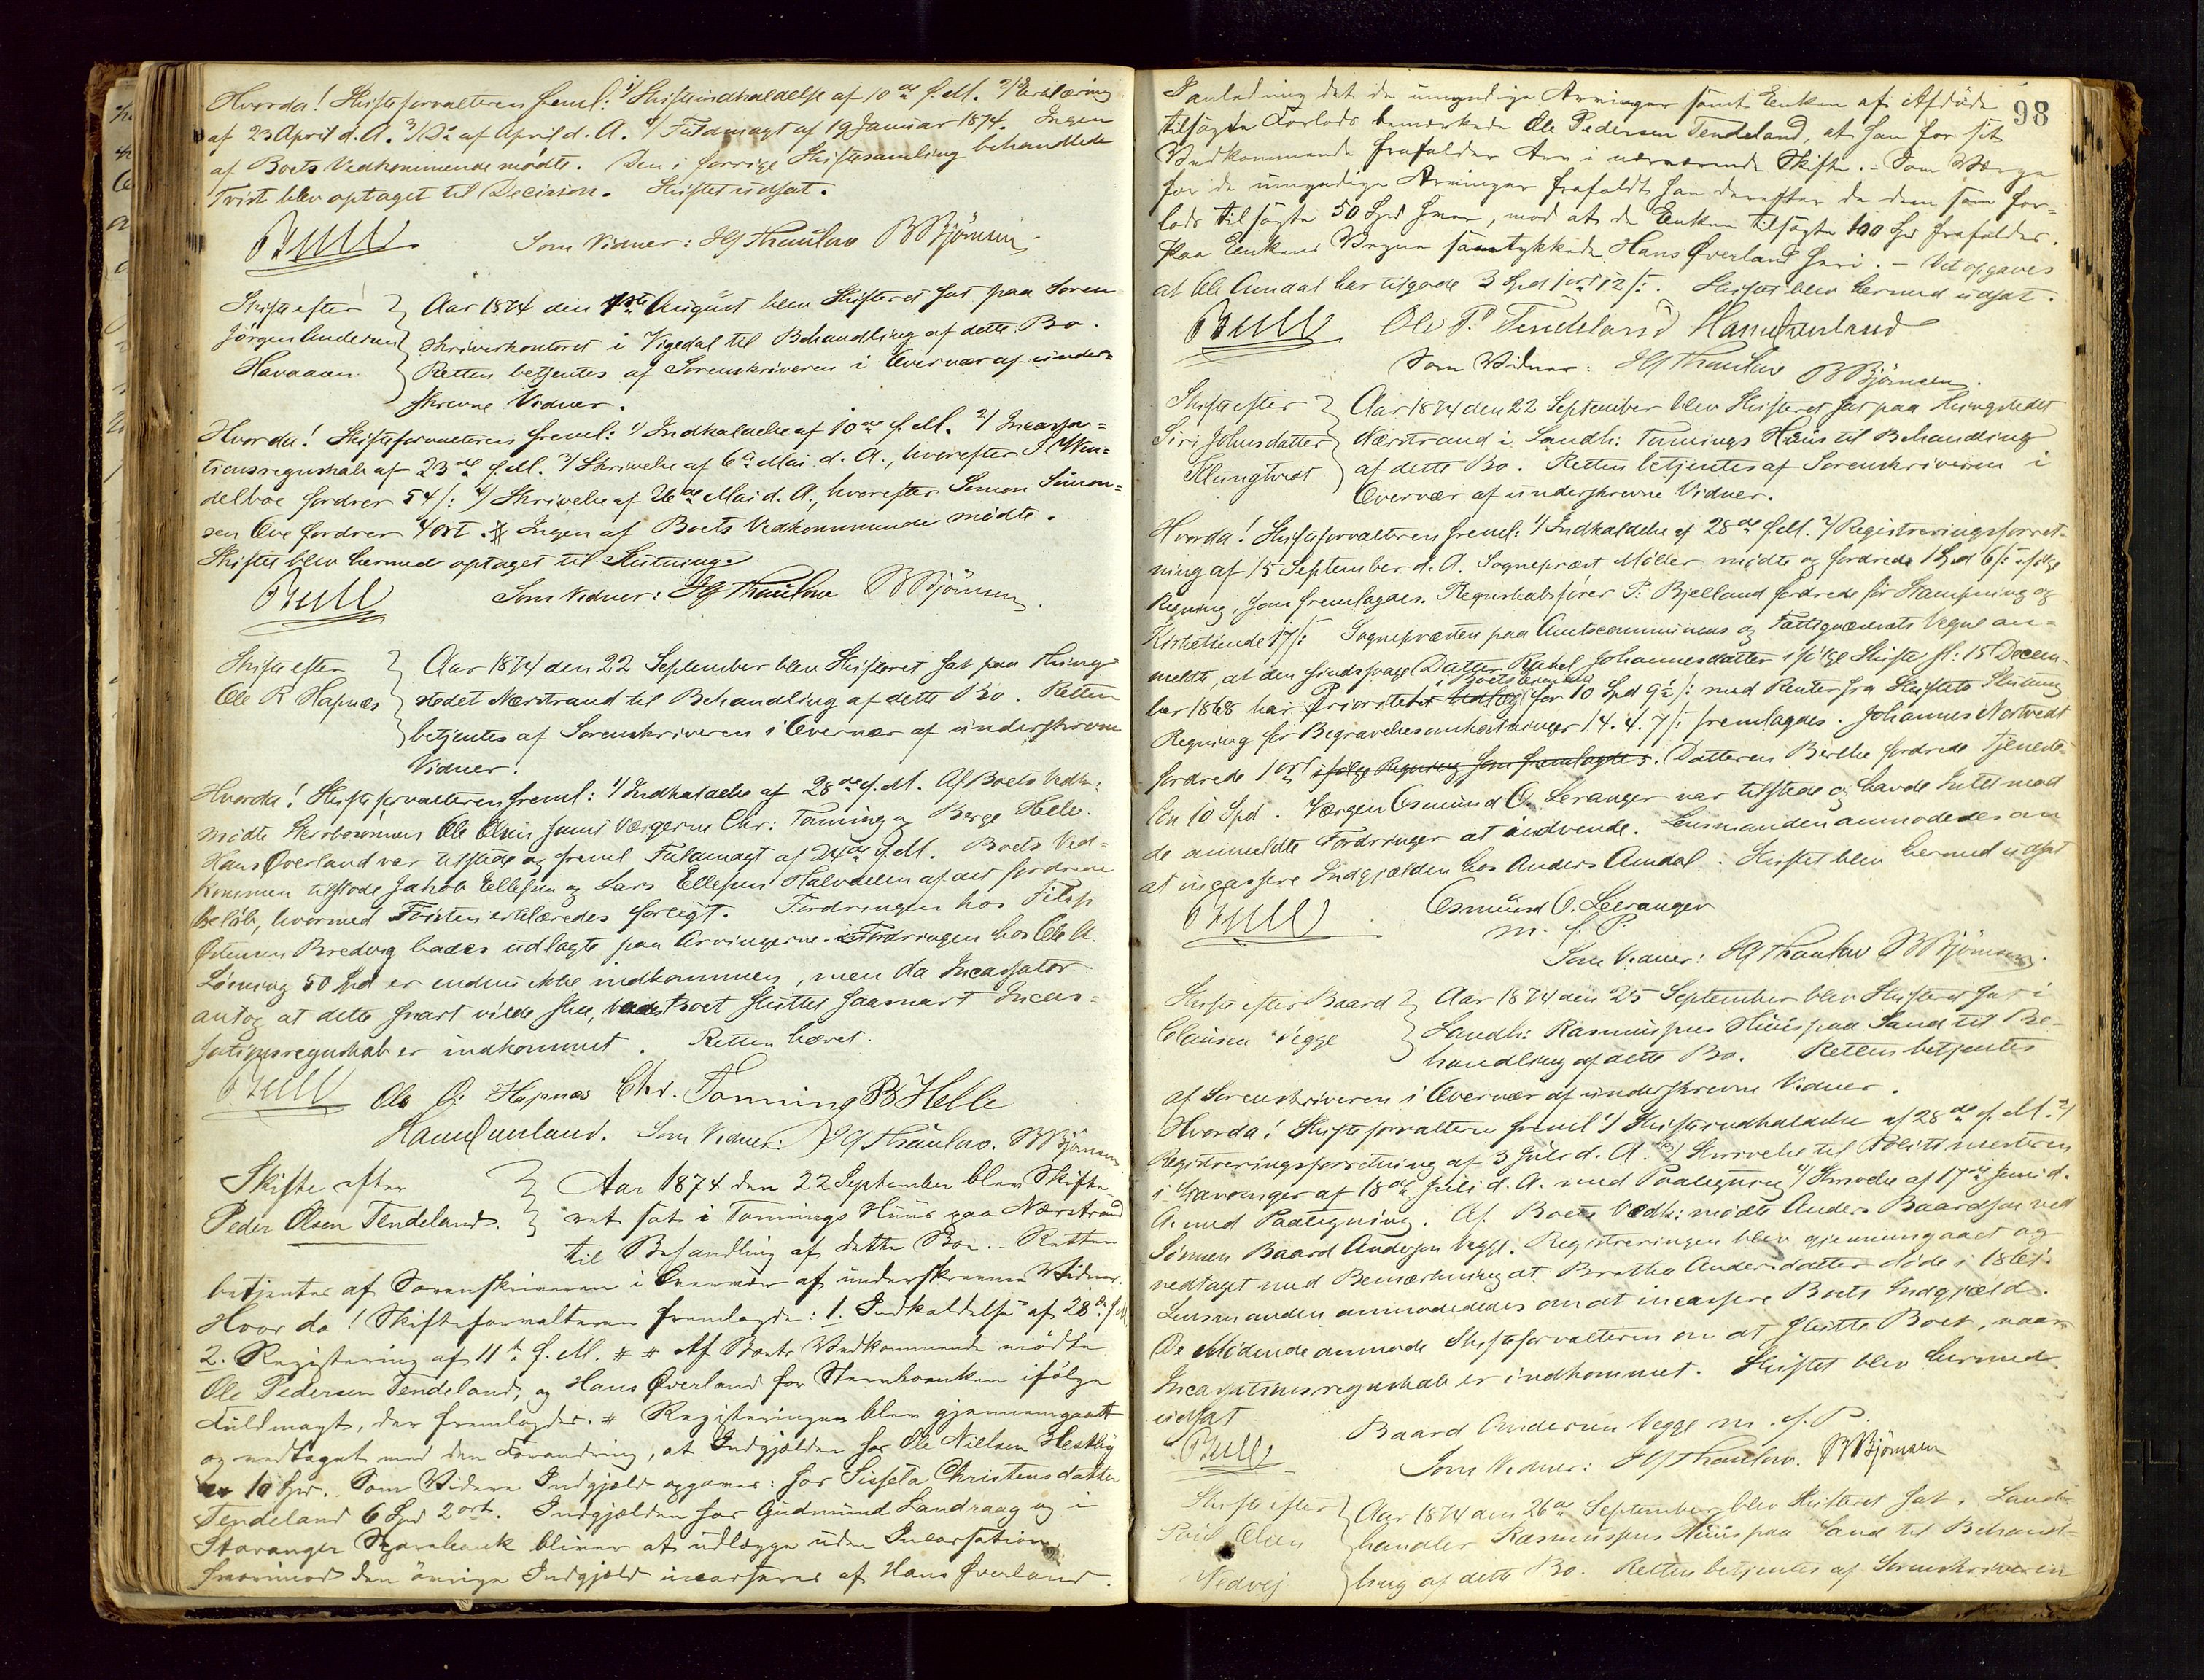 Hvorda! Skifteforvalteren freml: 1/ Skifteindkaldelse af 10de f. M. 2/ Erklæring
af 23 April d. A. 3/ Do af April d. A. 4/ Fuldmagt af 19 Januar 1874. Ingen
af Boets Vedkommende mødte. Den i forrige Skiftesamling behandlede
Tvist blev optaget til Decision. Skiftet udsat.
Bull Som Vidner: HG Thaulow B Bjørnsen
Skifte efter Aar 1874 den 1ste August blev Skifteret sat paa Soren
Jørgen Andersen skriverkontoret i Vigedal til Behandling af dette Bo.
Havaaen. Retten betjentes af Sorenskriveren i Overvær af under-
skrevne Vidner.
Hvorda! Skifteforvalteren freml: 1/ Indkaldelse af 10de f. M. 2/ Incassa-
tionsregnskab af 23de f. M. 3/ Skrivelse af 6te Mai d. A., hvorefter S Wen-
delboe fordrer 54 s: 4/ Skrivelse af 26de Mai d. A., hvorefter Simon Simon-
sen Ove fordrer 4 ort. # Ingen af Boets Vedkommende mødte.
Skiftet blev hermed optaget til Slutning.
Bull Som Vidner: HG Thaulow B Bjørnsen.
Skifte efter Aar 1874 den 22 September blev Skifteret sat paa Thing-
Ole R Hapnæs stedet Nærstrand til Behandling af dette Bo. Retten
betjentes af Sorenskriveren i Overvær af underskrevne
Vidner.
Hvorda! Skifteforvalteren freml: 1/ Indkaldelse af 28de f. M. Af Boets Vedk:
mødte Sterbosønnen Ole Olsen samt Værgerne Chr: Tanning og Børge Helle.
Hans Øverland var tilstede og freml Fuldmagt af 24de f. M. Boets Ved-
kommen tilstode Jakob Ellefsen og Lars Ellefsen Halvdelen af det fordrede
beløb, hvormed Tvisten erklæredes forligt. Fordringen hos Filip
Østensen Bredvig bades udlagt paa Arvingerne. Fordringen hos Ole A.
Løvning 50 Spd er endnu ikke indkommen, men da Incassator
antog at dette snart vilde skee, bades Boet sluttet saasnart Incas-
sationsregnskab er indkommet. Retten hævet.
Bull Ole O. Hapnæs Chr. Tanning B Helle
Hans Øverland. Som Vidner: HG Thaulow. B Bjørnsen
Skifte efter Aar 1874 den 22 September blev Skifte-
Peder Olsen Tendeland. ret sat i Tannings Huus paa Nærstrand
til Behandling af dette Bo. Retten
betjentes af Sorenskriveren i Overvær af underskrevne Vidner.
Hvor da! Skifteforvalteren fremlagde: 1. Indkaldelse af 28de f. M.
2. Registering af 11te f. M. # # Af Boets Vedkommende mødte
Ole Pedersen Tendeland, og Hans Øverland for Sterboenken ifølge
Fuldmagt, der fremlagdes. # Registeringen blev gjennemgaaet
og vedtaget med den Forandring, at Indgjælden hos Ole Nielsen
er 10 Spd. Som Videre Indgjæld opgaves: hos Sissela Christensdatter
Tendeland 6 Spd 2 ort. Indgjælden hos Gudmund Landraag og i
Stavanger Sparebank bliver at udlægge uden Incassation,
hvorimod den øvrige Indgjæld incasseres af Hans Øverland.
98
I anledning det de umyndige Arvinger samt Enken af Afdøde
tilsagte Forlods bemærkede Ole Pedersen Tendeland, at han for sit
Vedkommende frafalder Arv i nærværende Skifte. - Som Værge
for de umyndige Arvinger frafaldt han derefter de dem som for-
lods tilsagte 50 Spd hver, mod at de Enken tilsagte 100 Spd frafaldes.
Paa Enkens Vegne samtykkede Hans Øverland heri. - Det opgaves
at Ole Amdal har tilgode 3 Spd 1 ort 12 s:. Skiftet blev hermed udsat.
Bull Ole P. Tendeland Hans Øverland
Som Vidner: HG Thaulow B Bjørnsen.
Skifte efter Aar 1874 den 22 September blev Skifteret sat paa Thingstedet
Siri Johnsdatter Nærstrand i Landh: Tannings Huus til Behandling
Klungtvedt af dette Bo. Retten betjentes af Sorenskriveren i
Overvær af underskrevne Vidner.
Hvorda! Skifteforvalteren freml: 1/ Indkaldelse af 28de f. M. 2/ Registreringsforret-
ning af 15 September d. A. Sogneprest Møller mødte og fordrede 1 Spd 6 s: ifølge
Regning, som fremlagdes. Regnskabsfører P. Bjelland fordrede for og
Kirketiende 17 s: Sognepræsten paa Amtscommunens og Fattigvæsenets Vegne an-
meldte, at den sindssvage Datter Rakel Johannesdatter ifølge Skifte sl: 15 Decem-
i Boets
ber 1868 har Prioritetet Udlæg for 10 Spd 9½ s: med Renter fra Skiftets Slutning
Regning for Begravelsesomkostninger 14. 4. 7 s: fremlagdes. Johannes Nortvedt
fordrede 1 ort ifølge Regning som fremlagdes. Datteren Berthe fordrede Tjeneste-
løn 10 Spd. Værgen Osmund O. Leranger var tilstede og havde Intet mod
de anmeldte Fordringer at indvende. Lensmanden anmodedes om
at incassere Indgjælden hos Anders Amdal. Skiftet blev hermed udsat
Bull Osmund O. Leeranger
m. f. P.
Som Vidner: HG Thaulow B Bjørnsen.
Skifte efter Baard Aar 1874 den 25 September blev Skifteret sat i
Clausen Vegge Landh: Rasmussens Huus paa Sand til Be-
handling af dette Bo. Retten betjentes
af Sorenskriveren i Overvær af underskrevne Vidner.
Hvorda! Skifteforvaltere freml 1/ Skifteindkaldelse af 28de f. M. 2/
Registreringsforretning af 3 Juli d. A. 3/ Skrivelse til Politimesteren
i Stavanger af 18de Juli d. A. med Paategning 4/ Skrivelse af 17de Juni d.
A. med Paategning. Af Boets Vedk: mødte Anders Baardsen ved
Sønnen Baard Andersen Vegge. Registreringen blev gjennemgaaet og
vedtaget med Bemærkning at Brethe Andersdatter døde i 1861.
Lensmanden anmodededes om at incassere Boets Indgjæld.
De Mødende anmode Skifteforvalteren om at slutte Boet, naar
Incassationsregnskab er indkommet. Skiftet blev hermed
udsat
Bull Baard Andersen Vegge m. f. P.
Som Vidner: HG Thaulow. B Bjørnsen
Skifte efter Aar 1874 den 26de September blev Skifteret sat i Land-
Olsen handler Rasmussens Huus paa Sand til Behand-
Vedvej ling af dette Bo. Retten betjentes af Sorenskriveren